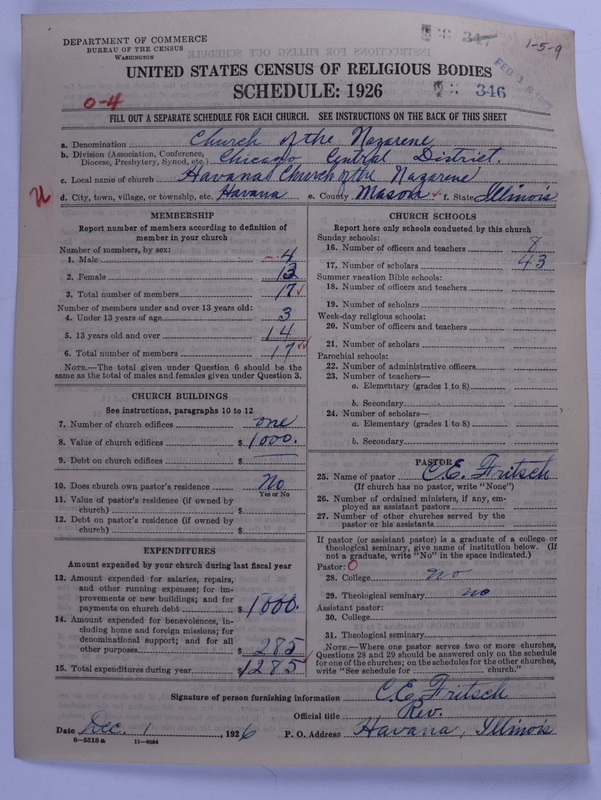 DEPARTMENT OF COMMERCE
BUREAU OF THE CENSUS
WASHINGTON
346
1-5-9
FEB
UNITED STATES CENSUS OF RELIGIOUS BODIES
SCHEDULE: 1926
346
0-4
FILL OUT A SEPARATE SCHEDULE FOR EACH CHURCH. SEE INSTRUCTIONS ON THE BACK OF THIS SHEET
a. Denomination Church of the Nazarene
b. Division (Association, Conference, Diocese, Presbytery, Synod, etc.) Chicago Central District.
c. Local name of church Havana Church of the Nazarene
d. City, town, village, or township, etc. Havana e. County Mason f. State Illinois
MEMBERSHIP
Report number of members according to definition of
member in your church
Number of members, by sex:
1. Male 4
2. Female 13
3. Total number of members 17
Number of members under and over 13 years old:
4. Under 13 years of age 3
5. 13 years old and over 14
6. Total number of members 17
NOTE.—The total given under Question 6 should be
same as the total of males and females given under Question 3.
CHURCH BUILDINGS
See instructions, paragraphs 10 to 12
7. Number of church edifices one
8. Value of church edifices $ 1000.
9. Debt on church edifices $
10. Does church own pastor's residence No
Yes or No
11. Value of pastor's residence (if owned by
church) $
12. Debt on pastor's residence (if owned by
church) $
EXPENDITURES
Amount expended by your church during last fiscal year
13. Amount expended for salaries, repairs,
and other running expenses; for im-
provements or new buildings; and for
payments on church debt $ 1000.
14. Amount expended for benevolences, in-
cluding home and foreign missions; for
denominational support; and for all
other purposes $ 285
15. Total expenditures during year $ 1285
CHURCH SCHOOLS
Report here only schools conducted by this church
Sunday schools:
16. Number of officers and teachers 8
17. Number of scholars 43
Summer vacation Bible schools:
18. Number of officers and teachers
19. Number of scholars
Week-day religious schools:
20. Number of officers and teachers
21. Number of scholars
Parochial schools:
22. Number of administrative officers
23. Number of teachers—
a. Elementary (grades 1 to 8)
b. Secondary
24. Number of scholars—
a. Elementary (grades 1 to 8)
b. Secondary
PASTOR
25. Name of pastor C. E. Fritsch
(If church has no pastor, write "None")
26. Number of ordained ministers, if any, em-
ployed as assistant pastors
27. Number of other churches served by the
pastor or his assistants
If pastor (or assistant pastor) is a graduate of a college or
theological seminary, give name of institution below. (If
not a graduate, write "No" in the space indicated.)
Pastor: 0
28. College no
29. Theological seminary no
Assistant pastor:
30. College
31. Theological seminary
NOTE.—Where one pastor serves two or more churches,
Questions 28 and 29 should be answered only on the schedule
for one of the churches; on the schedules for the other churches,
write "See schedule for church."
Signature of person furnishing information C. E. Fritsch
Official title Rev.
Date Dec. 1, 1926 P. O. Address Havana, Illinois
8—5518a 11—9554